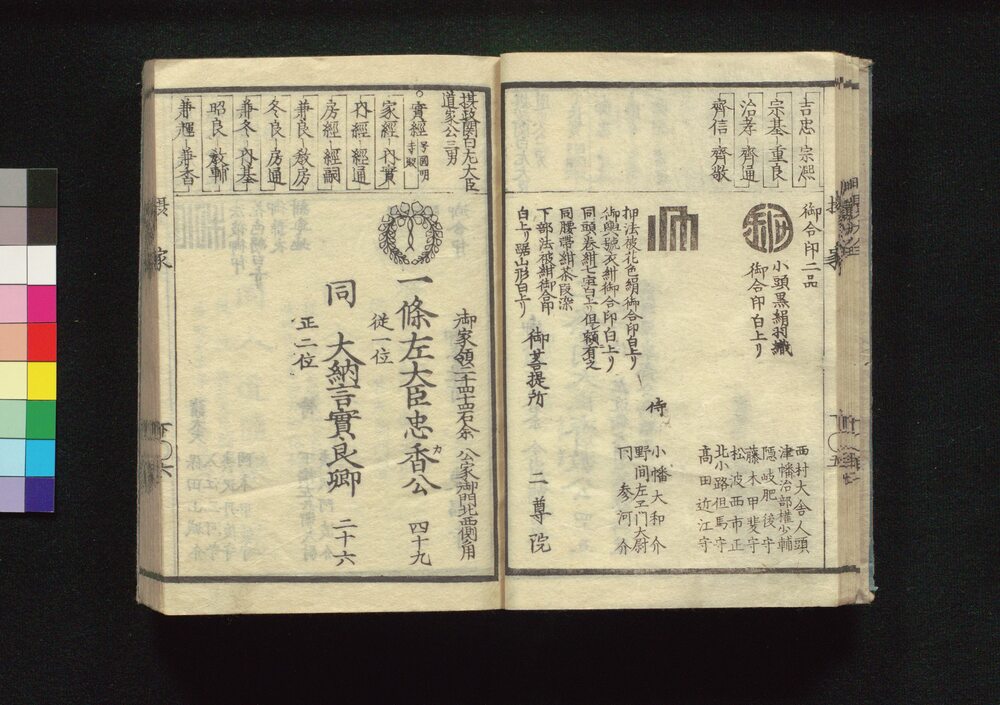 吉忠 宗凞
宗基 重良
治孝 齊通
齊信 齊敬
御合印二品
小頭黒絹羽織
御合印白上り
押法被花色絹御合印白上り
御輿號衣紺御合印白上り
同腰帯紺茶段染
下部法被紺御合印
白上り裾山形白上り
御菩提所
二尊院
侍
西村大舎人頭
津幡治部權少輔
隠岐肥後守
藤木甲斐守
松波西市正
北小路但馬守
髙田近江守
小幡大和介
野間左工門大尉
参河介
摂政関白左大臣
道家公三男
實經
家經 内實
内經 經通
房經 經嗣
兼良 教房
冬良 房通
兼冬 内基
昭良 教輔
兼輝 兼香
御家領二千四十四石余
公家御門北西側角
一條左大臣忠香公
従一位
四十九
同 大納言實良卿
正二位
二十六
摂家